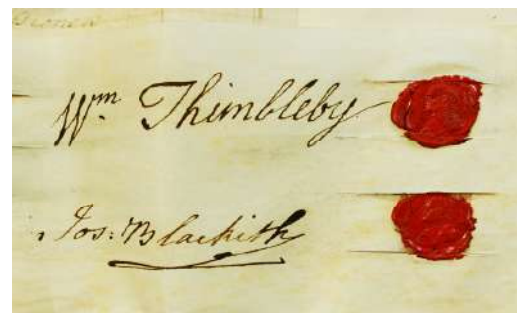 Wm. Thimbleby
Jos: Blackith